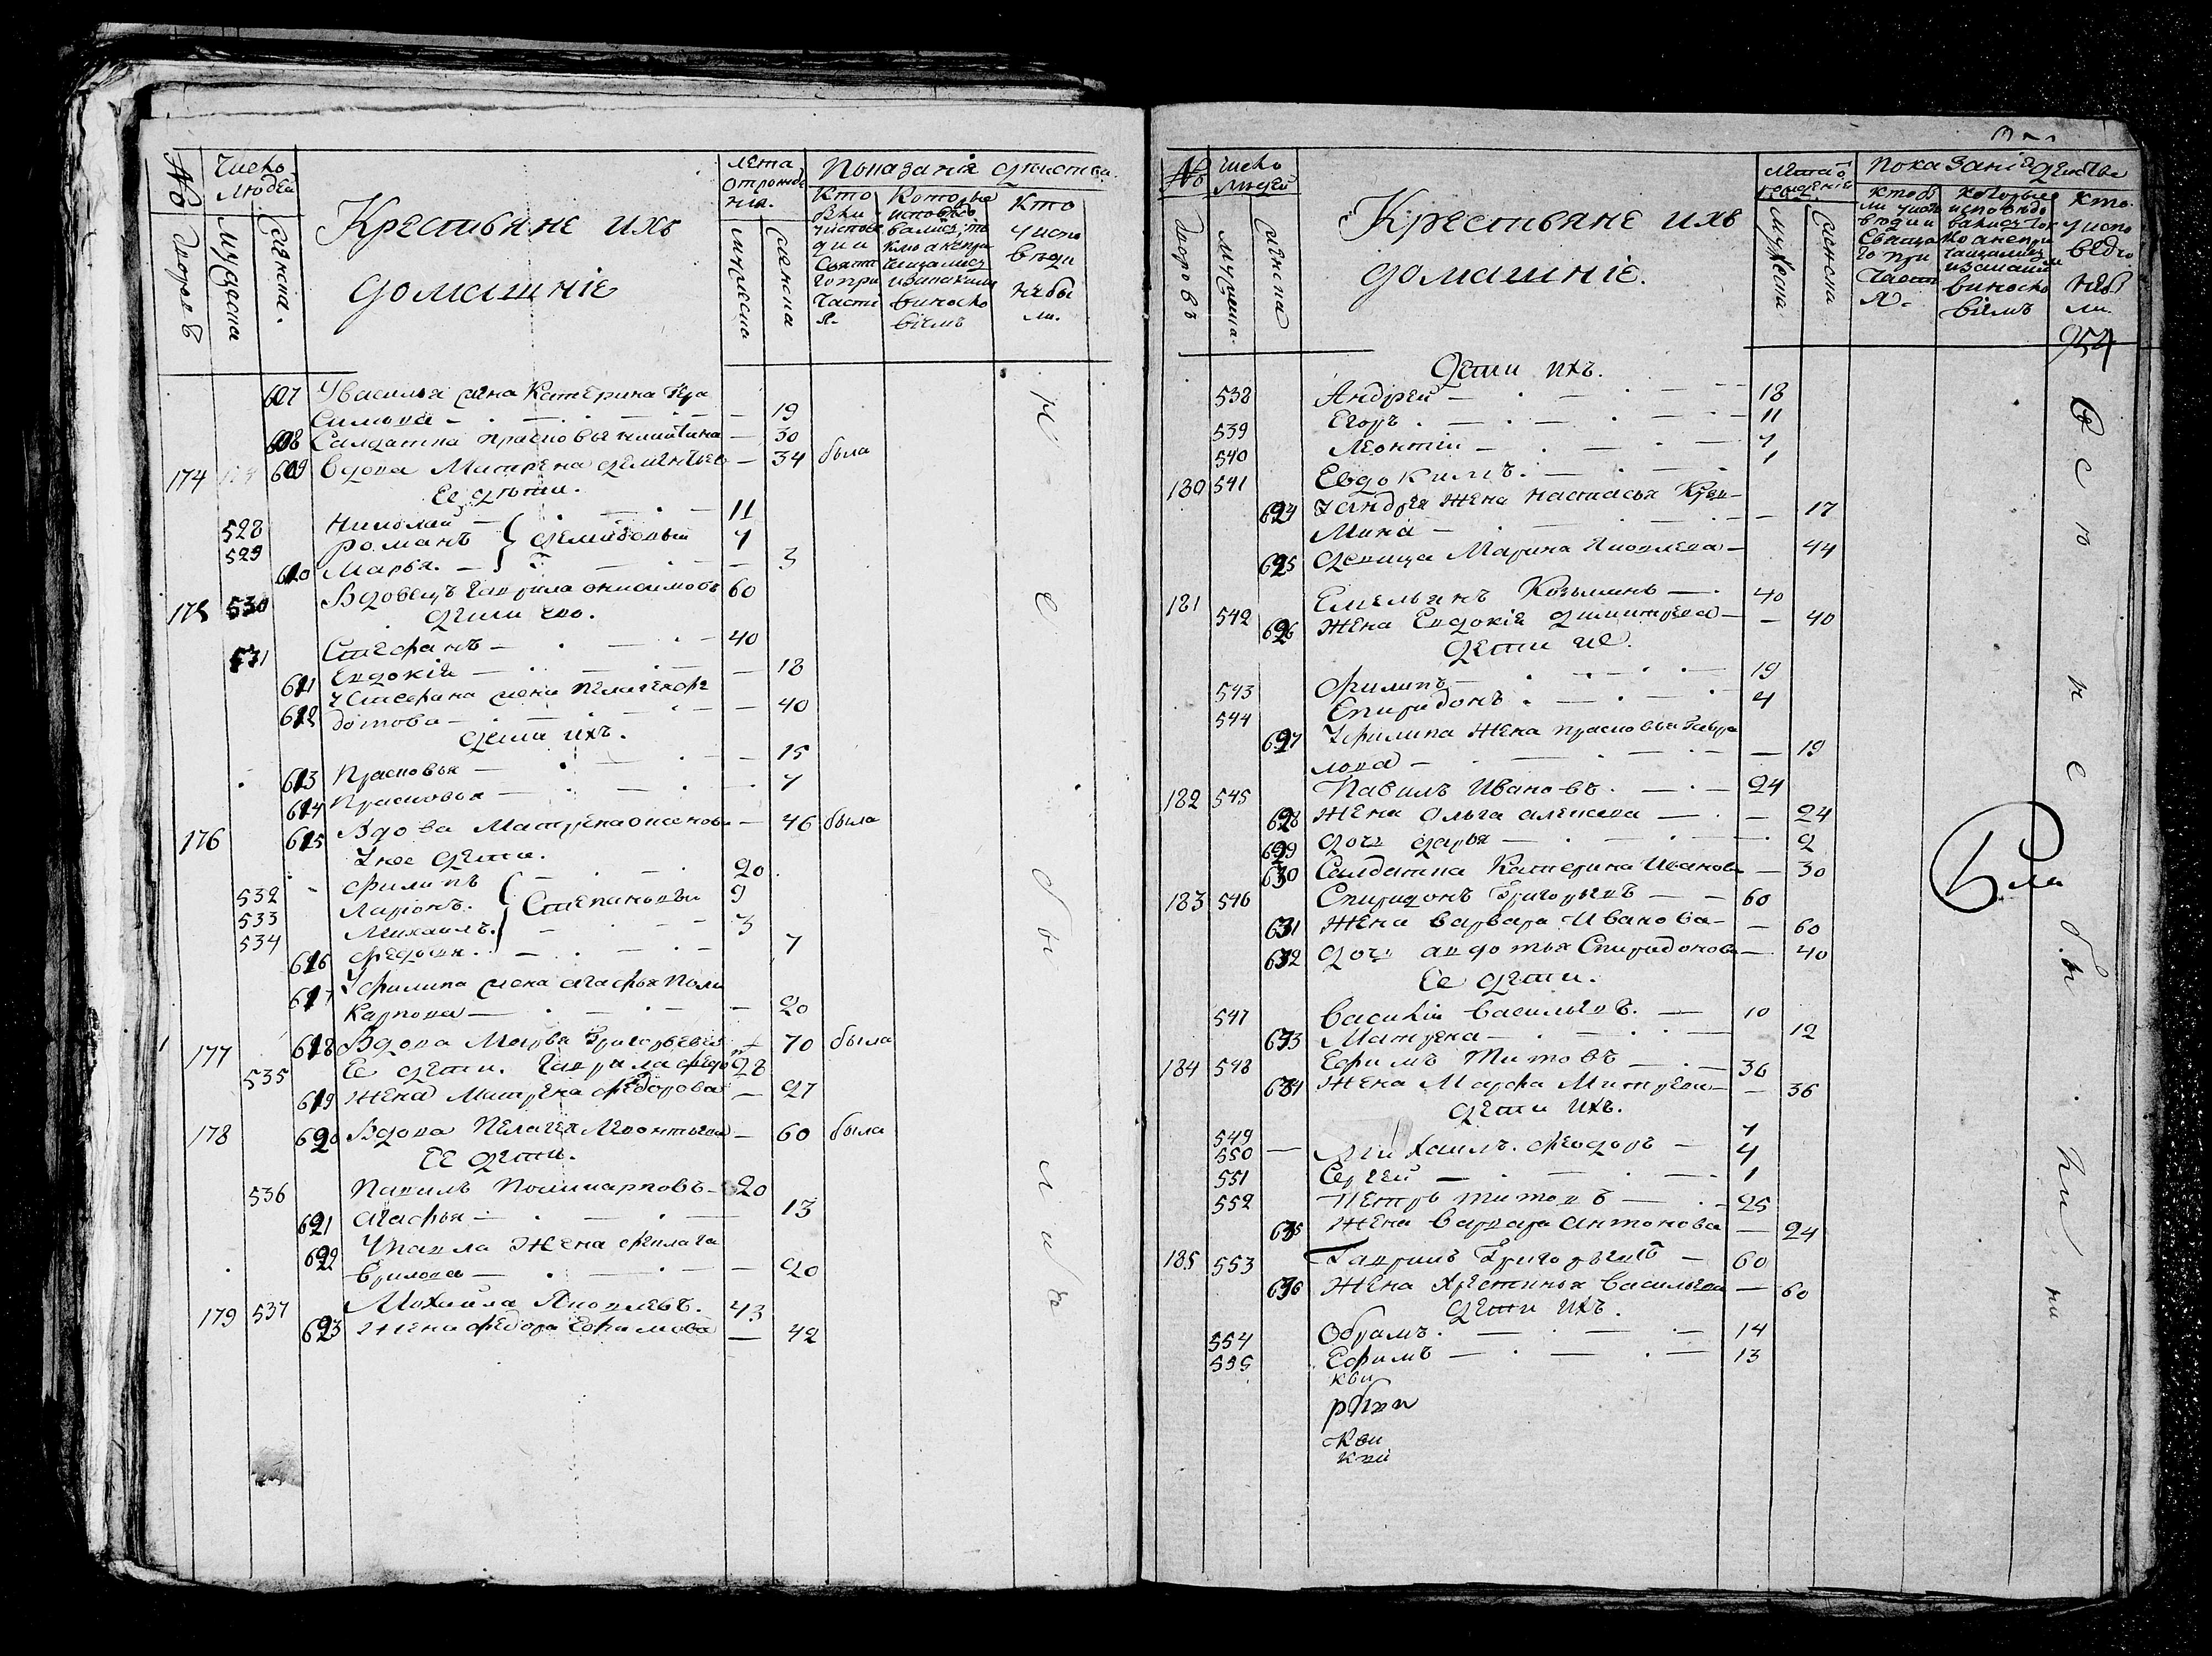 № Число людей
Дворовъ Мужеска Женска.
Крестьяне ихъ
домашніе
лета от рожде
нія.
мужеска женска
Показаніе действа.
Кто
были
у испове
ди и
Свята
го при
части
я.
Которые
исповедо
вались, то
кмо а не при
чащались
и за каким
виносло
віемъ
Кто
у испо
веди
не бы
ли.
607 У василья жена Катерина Гера
симова — 19
608 Салдатка прасковья никитина — 30
174 609 Вдова Матрена дементьева — 34 была
Ее дети.
528 Николай — 11
529 романъ 7
610 Марья. — 3
175 530 Вдовецъ гаврила онисимовъ 60
дети ево.
531 Стефанъ — 40
611 Евдокія — 18
612 У Стефана жена пелагея фе
дотова — 40
дети ихъ.
613 Прасковья — 15
614 Прасковья — 7
176 615 Вдова Матрена — 46 была
У нее дети.
532 филипъ 20
533 Ларіонъ. Степановы 9
534 Михаилъ. 3
616 федосья. — 7
617 У филипа жена агафья Поли
карпова — 20
177 618 Вдова Марѳа Григорьева — 70 была
535 Ее дети. Гаврила федо 28
619 Жена Матрена федорова — 27
178 620 Вдова Пелагея Леонтьева — 60 была
Ее дети.
536 Павилъ Поликарповъ — 20
621 агафья — 13
622 У павла Жена
врилова — 20
179 537 Михайла Яковлевъ. 43
623 Жена федора Ефимова — 42
не были
№ Число людей
Дворовъ Мужеска. Женска
Крестьяне ихъ
домашніе.
мужеска женска
Показаніе действа
Кто бы
ли у испо
веди и
Свята
го при
части
я.
Которые
исповедо
вались то
кмо а не при
чащались
и за каким
виносло
віемъ
Кто
у испо
веди
не бы
ли.
954
дети ихъ.
538 Андрей — 18
539 Егоръ. — 11
540 Леонтій — 7
180 541 Евдокимъ. — 1
624 У андрея жена настасья Кузь
мина — 17
625 девица Марина Яковлева — 44
181 542 Емельянъ Козьминъ — 40
626 Жена Евдокія димитрева — 40
дети ие.
543 филипъ — 19
544 Спиридонъ. — 4
627 У филипа жена прасковья Гаври
лова — 19
182 545 Павилъ Ивановъ. — 24
628 Жена Ольга алексева — 24
629 дочь дарья — 2
630 Салдатка Катерина Иванова — 30
183 546 Спиридонъ Григорьевъ — 60
631 Жена варвара Иванова — 60
632 дочь авдотья Спиридонова — 40
Ее дети.
547 Василій васильевъ. — 10
633 Матрена — 12
184 548 Ефимъ Титовъ — 36
634 Жена Марфа Митрева — 36
дети ихъ.
549 7
550 — Михаилъ. феодоръ — 4
551 Сергей — 1
552 Петръ титовъ — 25
635 Жена варвара антонова — 24
185 553 Гаврилъ Григорьевъ — 60
636 Жена Хрестинья васильева — 60
дети ихъ.
554 Обрамъ. — 14
555 Ефимъ — 13